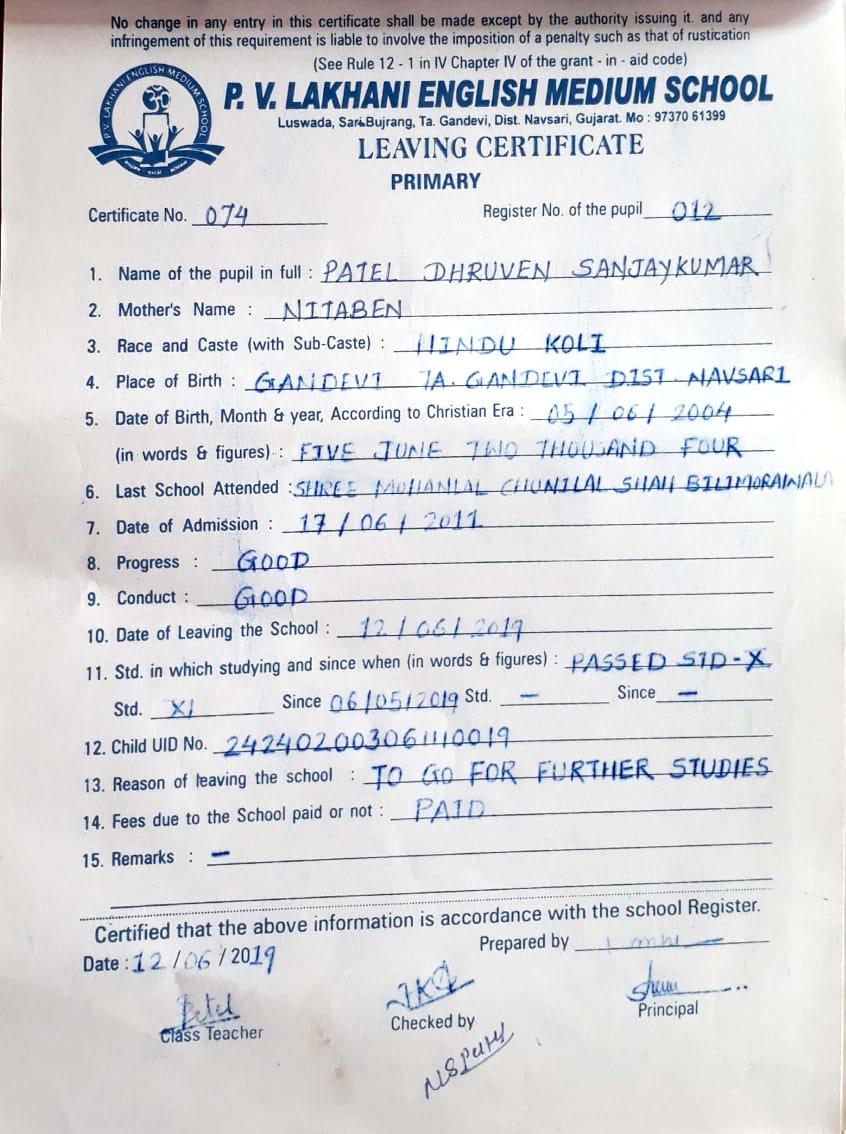 No change in any entry in this certificate shall be made except by the authority issuing it. and any
infringement of this requirement is liable to involve the imposition of a penalty such as that of rustication
(See Rule 12 - 1 in IV Chapter IV of the grant - in - aid code)
P. V. LAKHANI ENGLISH MEDIUM SCHOOL
P. V. LAKHANI ENGLISH MEDIUM SCHOOL
Luswada, Sari-Bujrang, Ta. Gandevi, Dist. Navsari, Gujarat. Mo : 97370 61399
LEAVING CERTIFICATE
PRIMARY
Certificate No. 074 Register No. of the pupil 012
1. Name of the pupil in full : PATEL DHRUVEN SANJAYKUMAR
2. Mother's Name : NITABEN
3. Race and Caste (with Sub-Caste) : HINDU KOLI
4. Place of Birth : GANDEVI TA. GANDEVI DIST. NAVSARI
5. Date of Birth, Month & year, According to Christian Era : 05 / 06 / 2004
(in words & figures) : FIVE JUNE TWO THOUSAND FOUR
6. Last School Attended : SHREE MOHANLAL CHUNILAL SHAH BILIMORAWALA
7. Date of Admission : 17 / 06 / 2011
8. Progress : GOOD
9. Conduct : GOOD
10. Date of Leaving the School : 12 / 06 / 2019
11. Std. in which studying and since when (in words & figures) : PASSED STD - X
Std. XI Since 06/05/2019 Std. — Since —
12. Child UID No. 242402003061110019
13. Reason of leaving the school : TO GO FOR FURTHER STUDIES
14. Fees due to the School paid or not : PAID
15. Remarks : —
Certified that the above information is accordance with the school Register.
Date : 12 / 06 / 2019 Prepared by
Class Teacher Checked by Principal